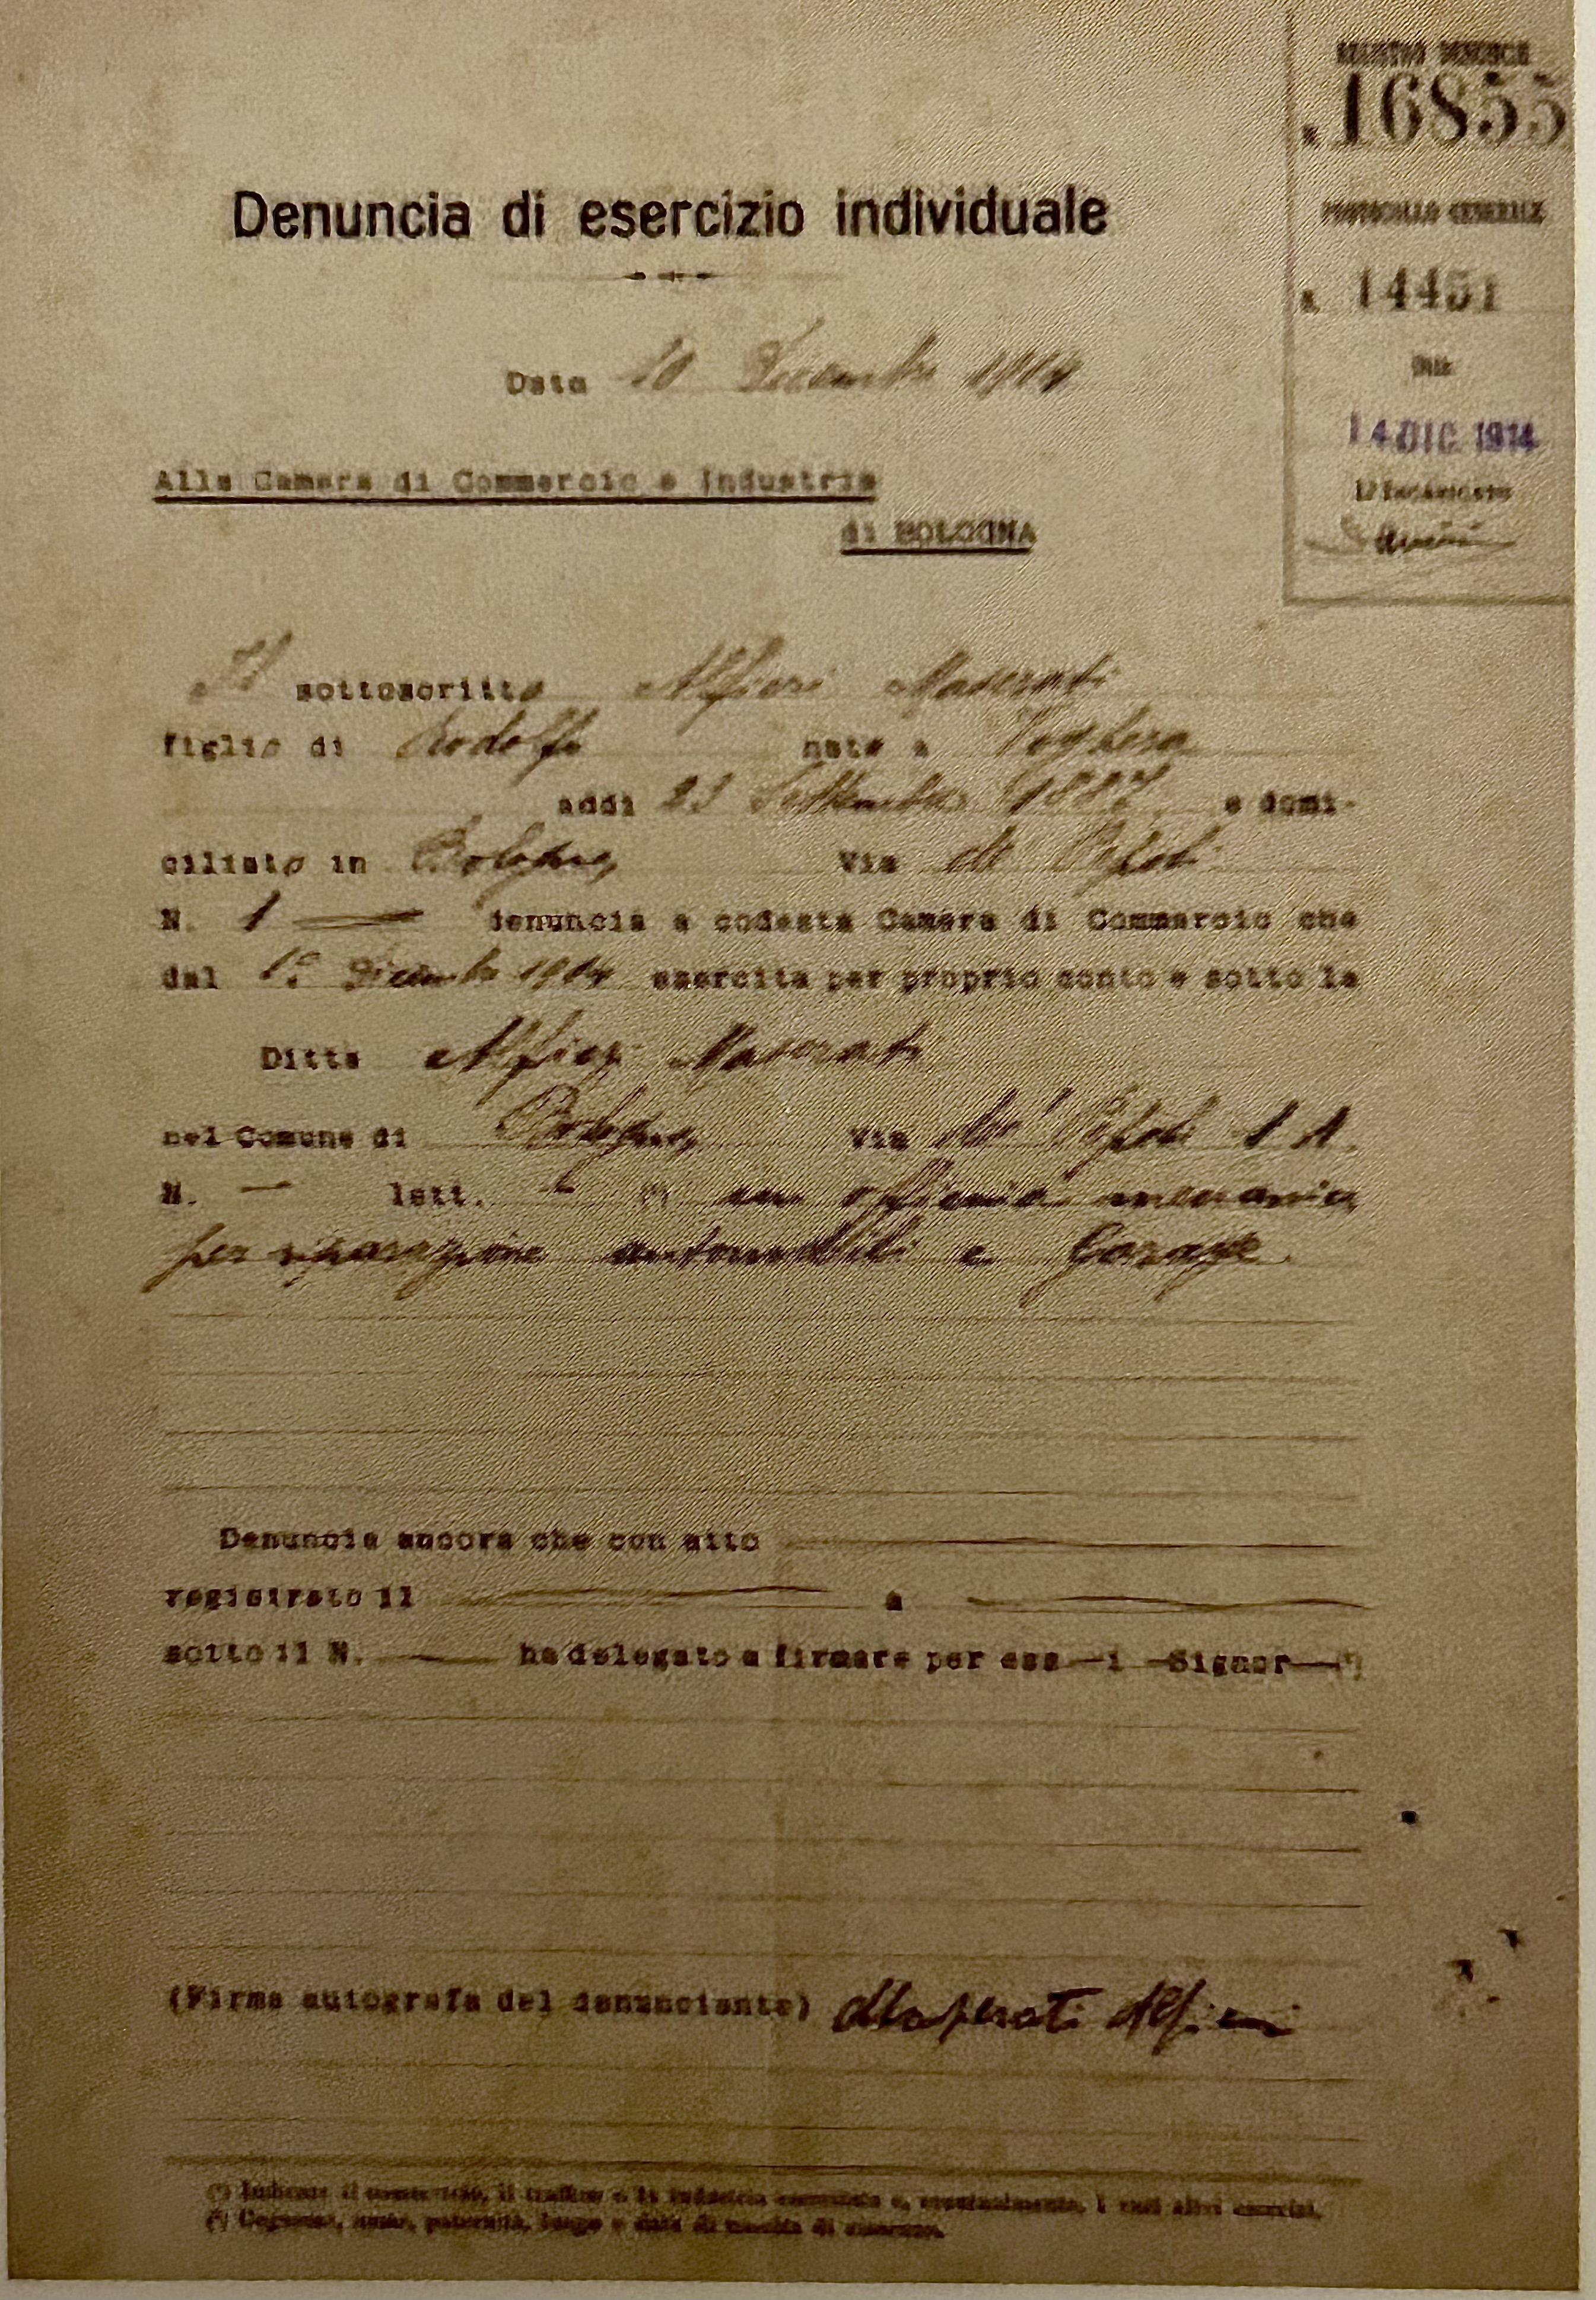 REGISTRO DENUNCIE
N. 16855
PROTOCOLLO GENERALE
N. 14451
Data
14 DIC. 1914
L'Incaricato
Denuncia di esercizio individuale
Data 10 Dicembre 1914
Alla Camera di Commercio e Industria
di BOLOGNA
Il sottoscritto Alfieri Maserati
figlio di Rodolfo nato a Voghera
addì 23 Settembre 1887 e domi-
ciliato in Bologna Via de' Pepoli
N. 1 denuncia a codesta Camera di Commercio che
dal 1º Dicembre 1914 esercita per proprio conto e sotto la
Ditta Alfieri Maserati
nel Comune di Bologna Via de' Pepoli 1 A
N. — lett. — (¹) un officina meccanica
per riparazione automobili e Garage
Denuncia ancora che con atto
registrato il a
sotto il N. ha delegato a firmare per ess i Signor (²)
(Firma autografa del denunciante) Maserati Alfieri
(¹) Indicare il commercio, il traffico o la industria esercitata e, eventualmente, i vari altri esercizi.
(²) Cognome, nome, paternità, luogo e data di nascita di ciascuno.